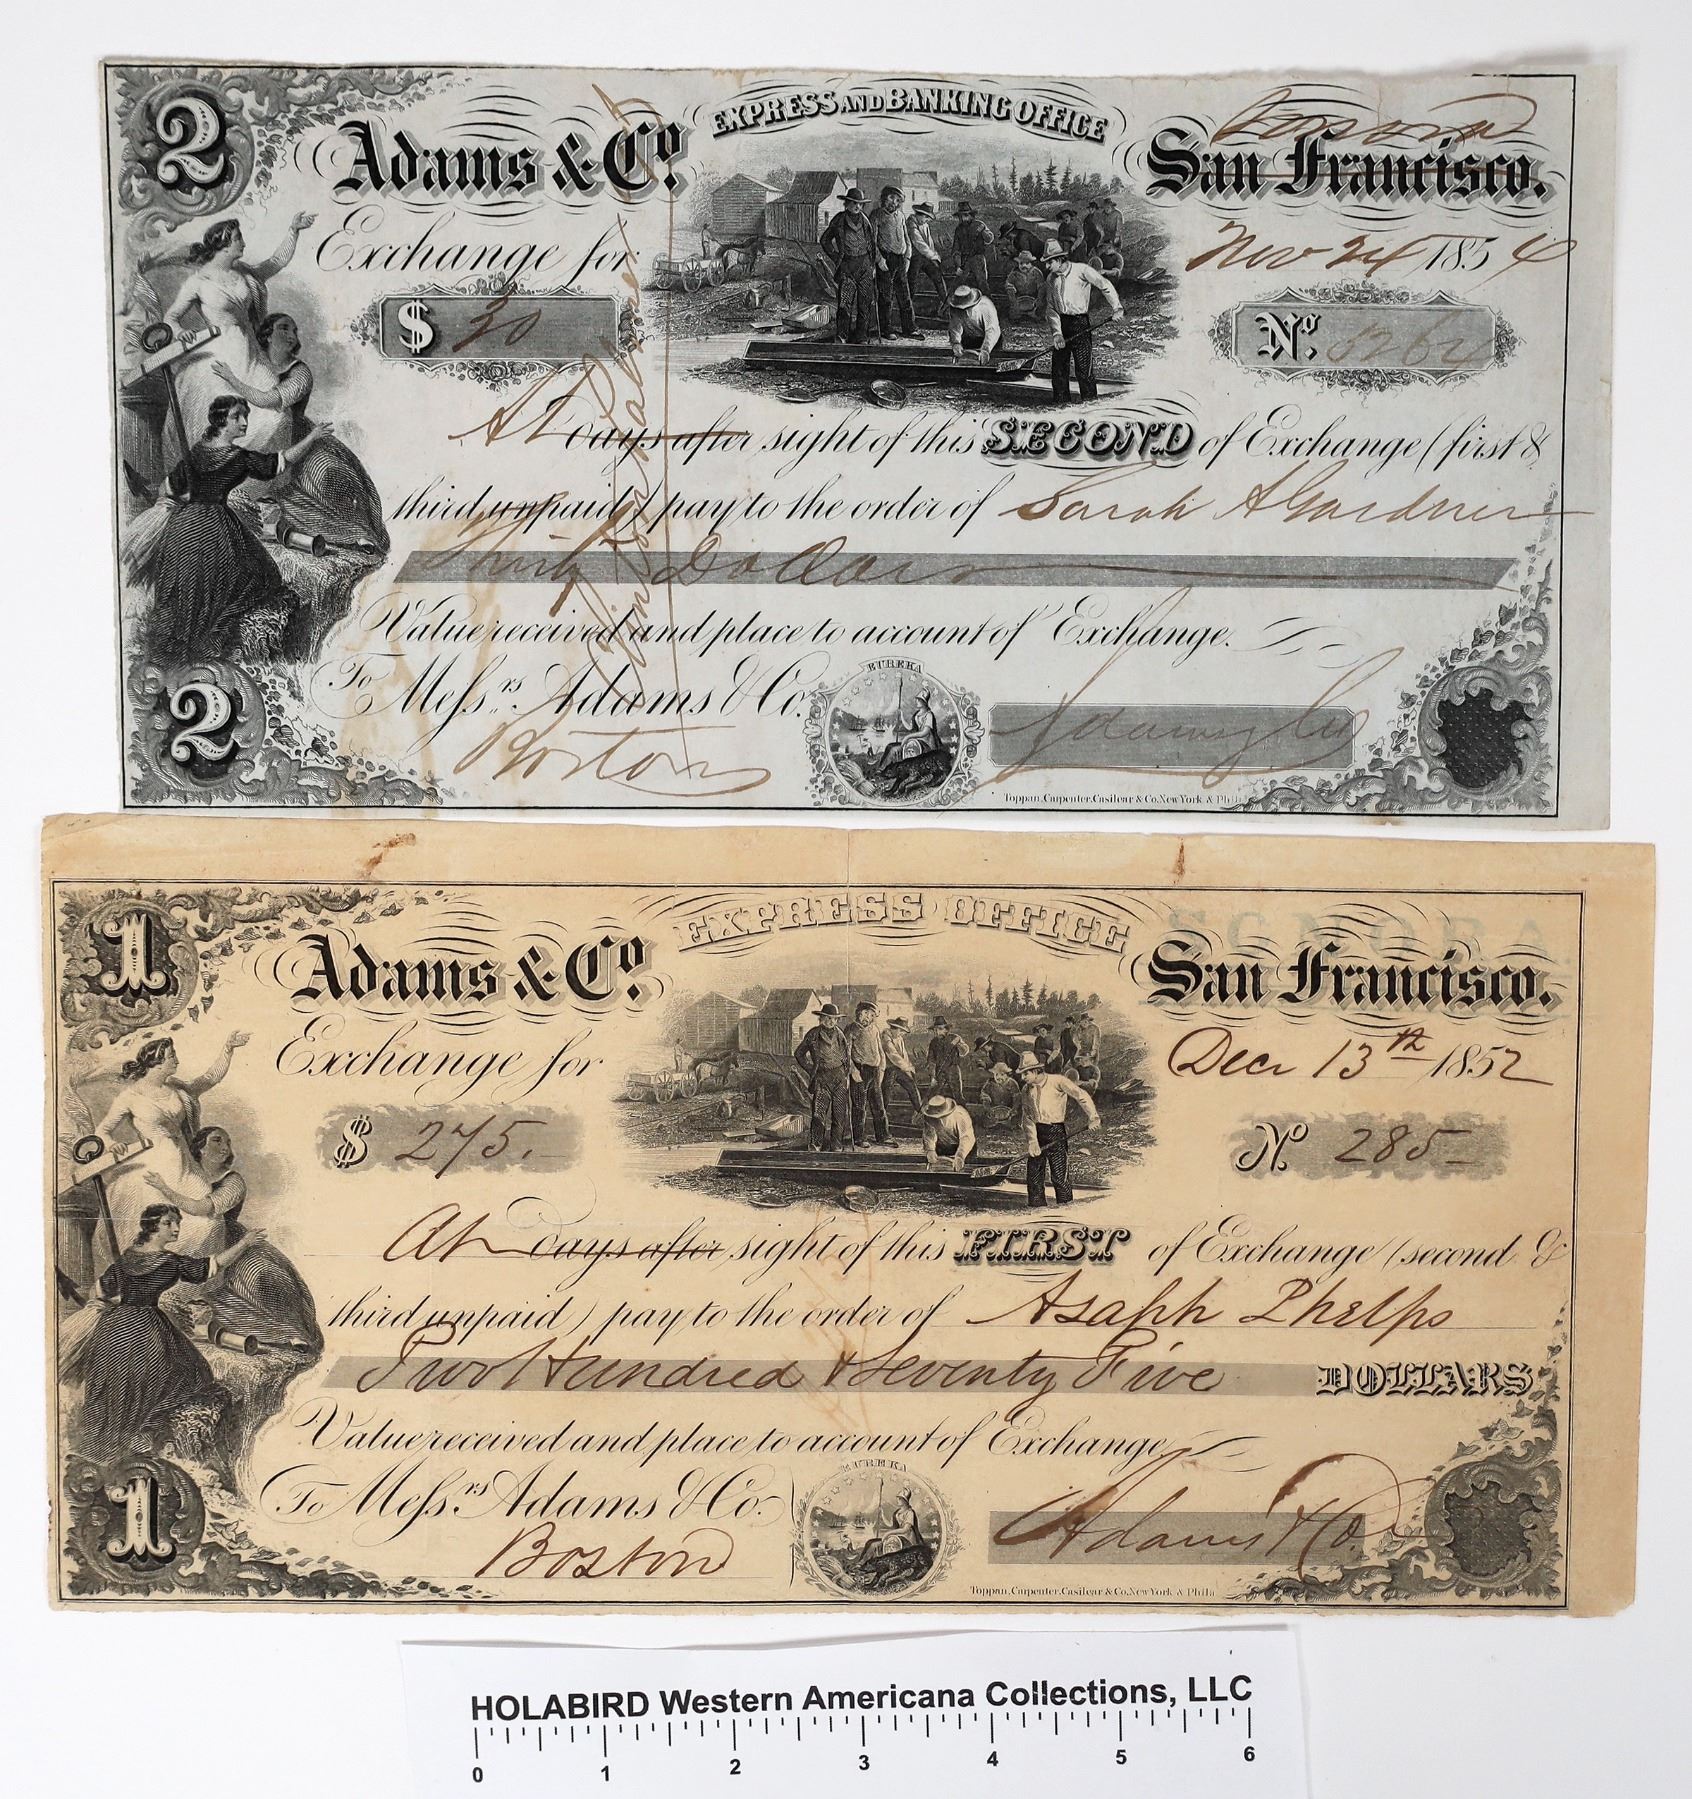 2
EXPRESS AND BANKING OFFICE
Sonora
Adams & Co. San Francisco.
Exchange for
Nov 24 1854
$ 30
No. 5264
At days after sight of this SECOND of Exchange (first &
third unpaid) pay to the order of Sarah A Gardner
Thirty Dollars
Value received and place to account of Exchange.
To Messrs. Adams & Co.
Boston
EUREKA
Adams & Co
2
Toppan, Carpenter, Casilear & Co. New York & Phila
1
EXPRESS OFFICE
SONORA
Adams & Co. San Francisco.
Exchange for
Decr 13th 1852
$ 275.
No. 285
At days after sight of this FIRST of Exchange (second &
third unpaid) pay to the order of Asaph Phelps
Two Hundred & Seventy Five DOLLARS
Value received and place to account of Exchange
To Messrs. Adams & Co.
Boston
EUREKA
Adams & Co.
1
Toppan, Carpenter, Casilear & Co. New York & Phila
HOLABIRD Western Americana Collections, LLC
0 1 2 3 4 5 6